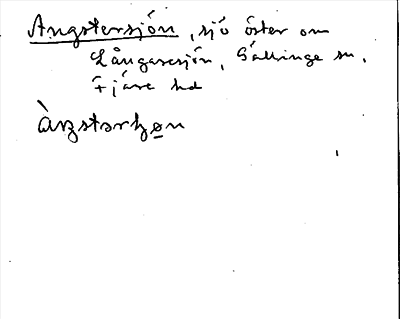 Angstersjön, sjö öster om
Långasesjön, Gällinge sn,
Fjäre hd
àŋstərʃøn